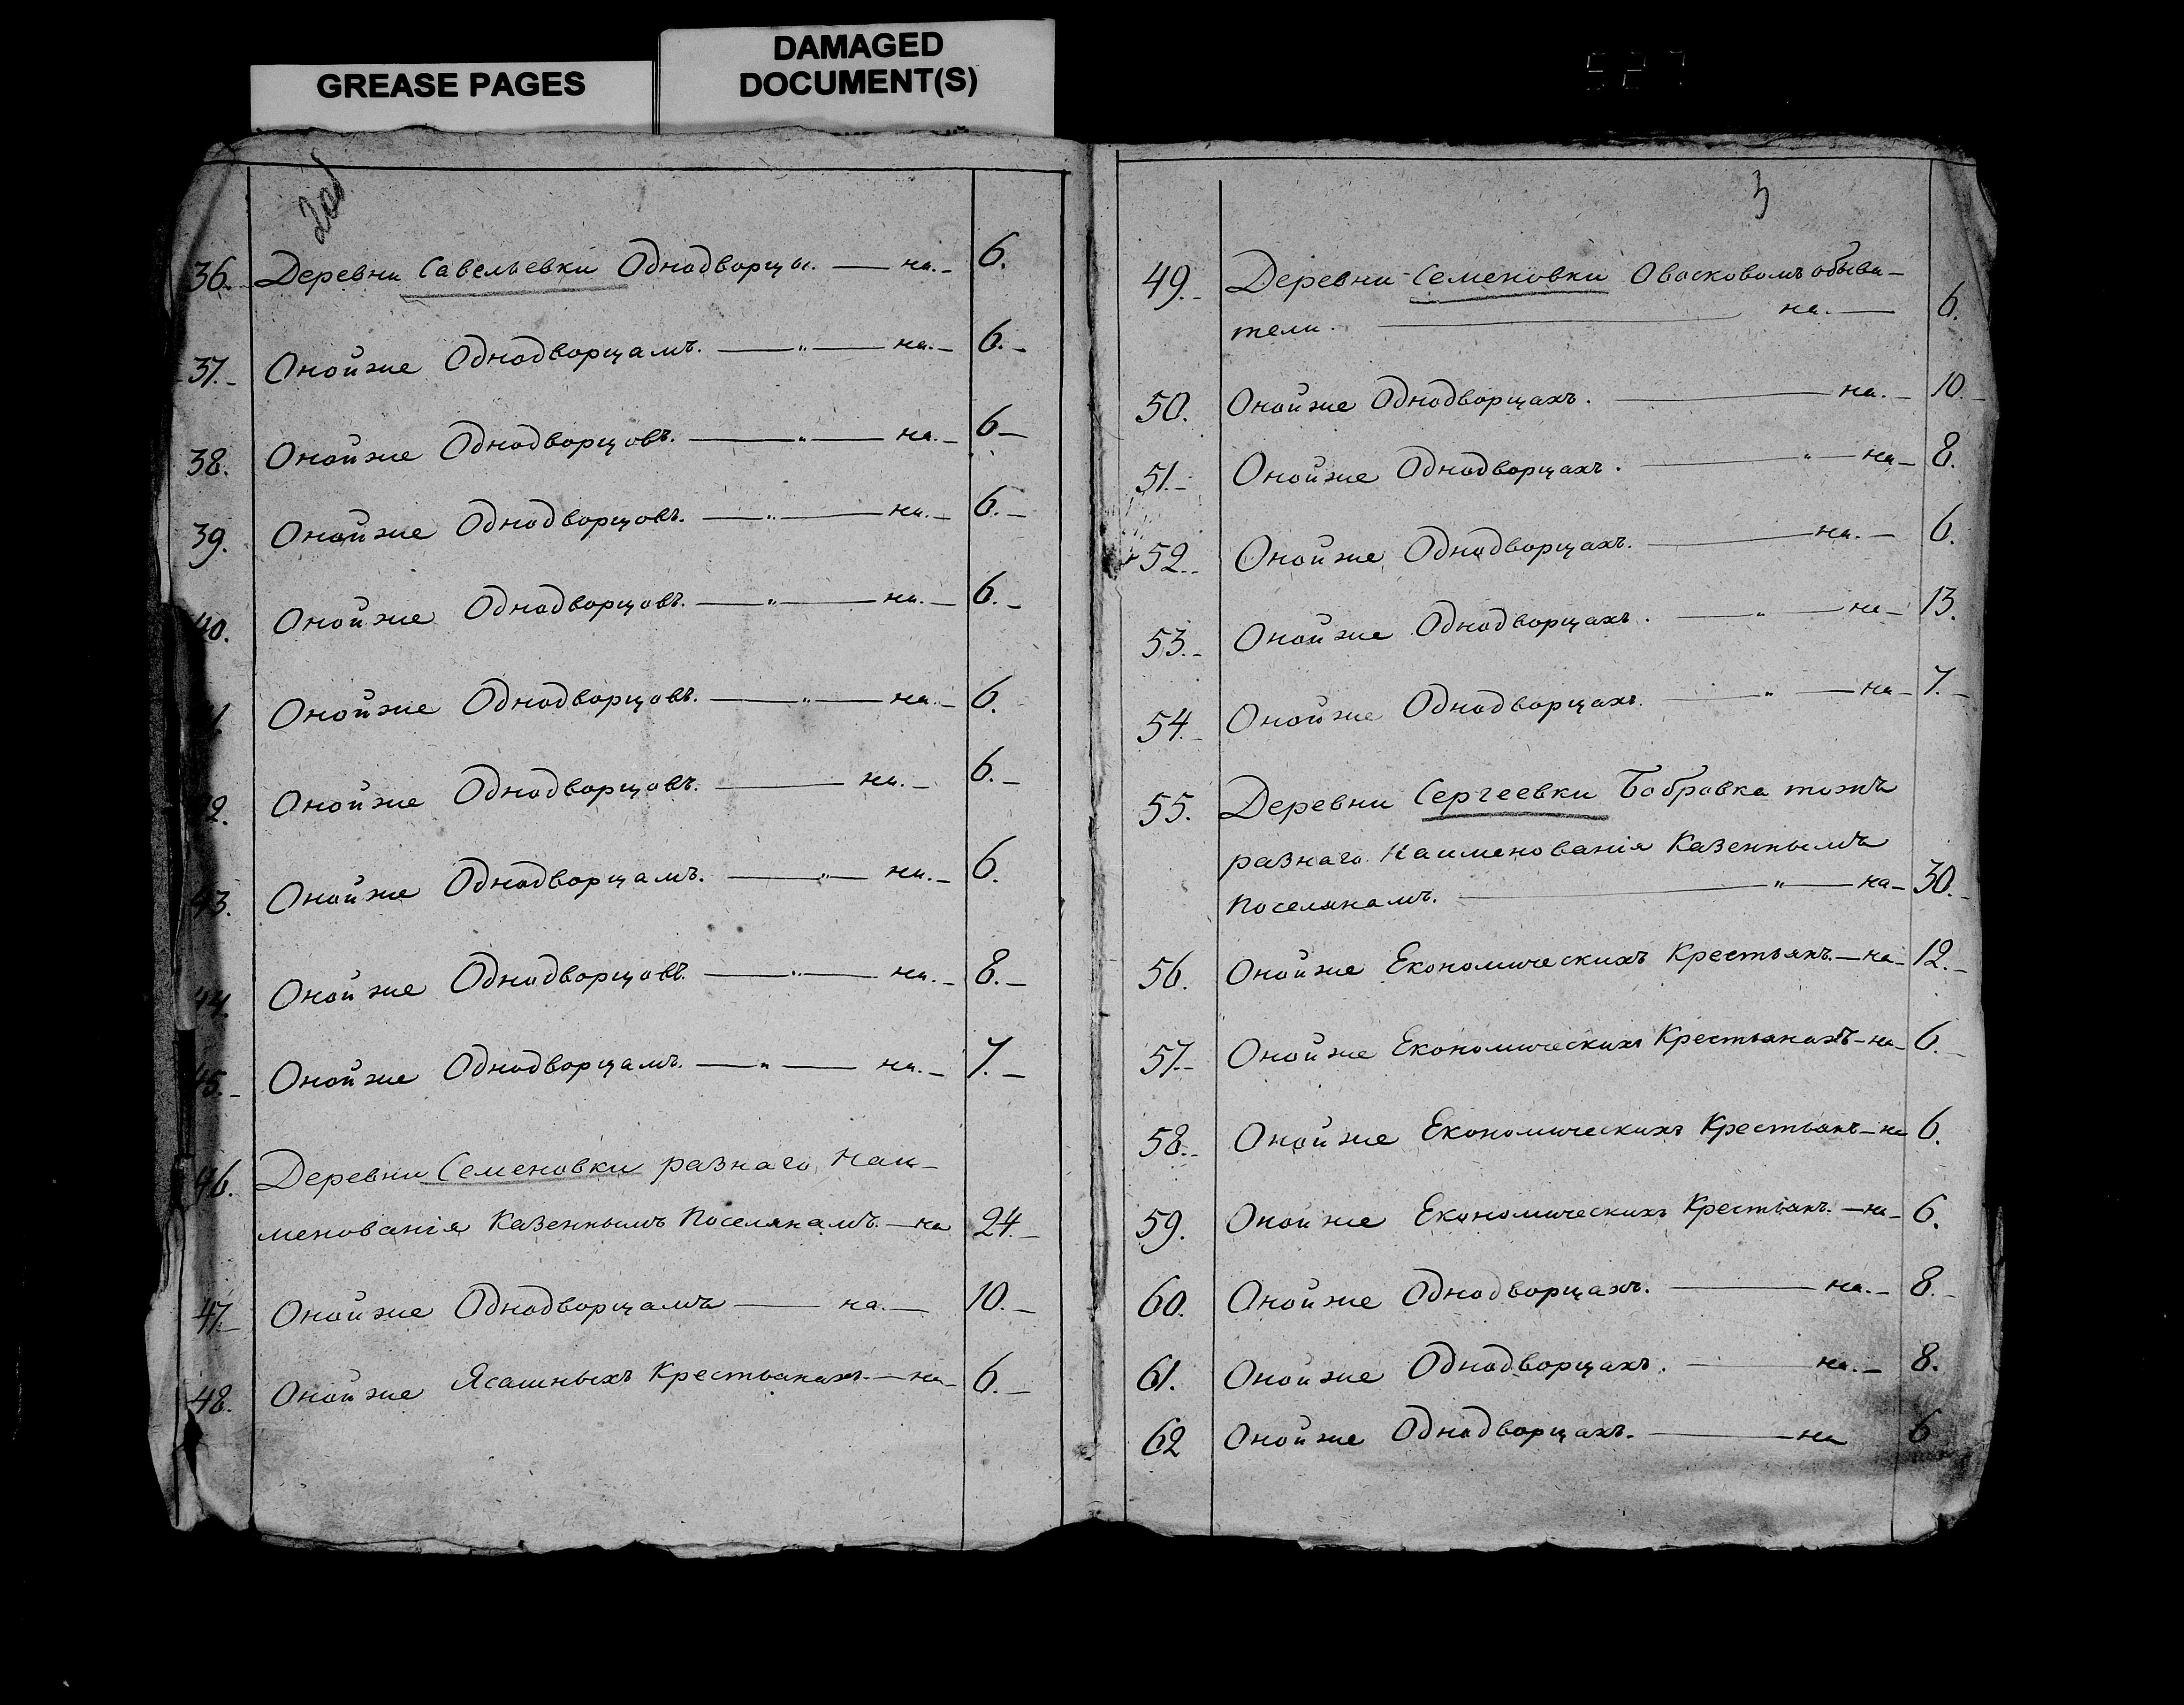 GREASE PAGES
DAMAGED
DOCUMENT(S)
2об
36. Деревни Савельевки Однодворцы. — на. — 6.
37. — Онойже Однодворцамъ. — „ — на. — 6. —
38. Онойже Однодворцовъ. — „ — на. — 6 —
39. Онойже Однодворцовъ. — „ — на. — 6. —
40. Онойже Однодворцовъ. — „ — на. — 6. —
41. Онойже Однодворцовъ. — „ — на. — 6.
42. Онойже Однодворцовъ. — на. — 6. —
43. Онойже Однодворцамъ. — „ — на. — 6.
44. Онойже Однодворцовъ. — „ — на. — 8. —
45. — Онойже Однодворцамъ. — „ — на. — 7. —
46. Деревни Семеновки разнаго Наи-
менованія Казеннымъ Поселянамъ. — на 24. —
47. — Онойже Однодворцамъ — на. — 10. —
48. Онойже Ясашныхъ Крестьянахъ. — на — 6. —
3
49. — Деревни Семеновки обыва-
тели. — на. — 6.
50. Онойже Однодворцахъ. — на. — 10. —
51. — Онойже Однодворцахъ. — „ — на — 8.
52. — Онойже Однодворцахъ. — на. — 6.
53. — Онойже Однодворцахъ. — „ — на — 13.
54. — Онойже Однодворцахъ. — „ — на — 7. —
55. Деревни Сергеевки Бобровка тожъ
разнаго Наименованія Казеннымъ
Поселянамъ. — „ — на — 30. —
56. Онойже Економическихъ Крестьянъ. — на — 12. —
57. — Онойже Економическихъ Крестьянахъ — на — 6. —
58. — Онойже Економическихъ Крестьянъ — на 6.
59. Онойже Економическихъ Крестьянъ. — на — 6.
60. Онойже Однодворцахъ. — на. — 8. —
61. Онойже Однодворцахъ. — на. — 8.
62 Онойже Однодворцахъ. — на 6